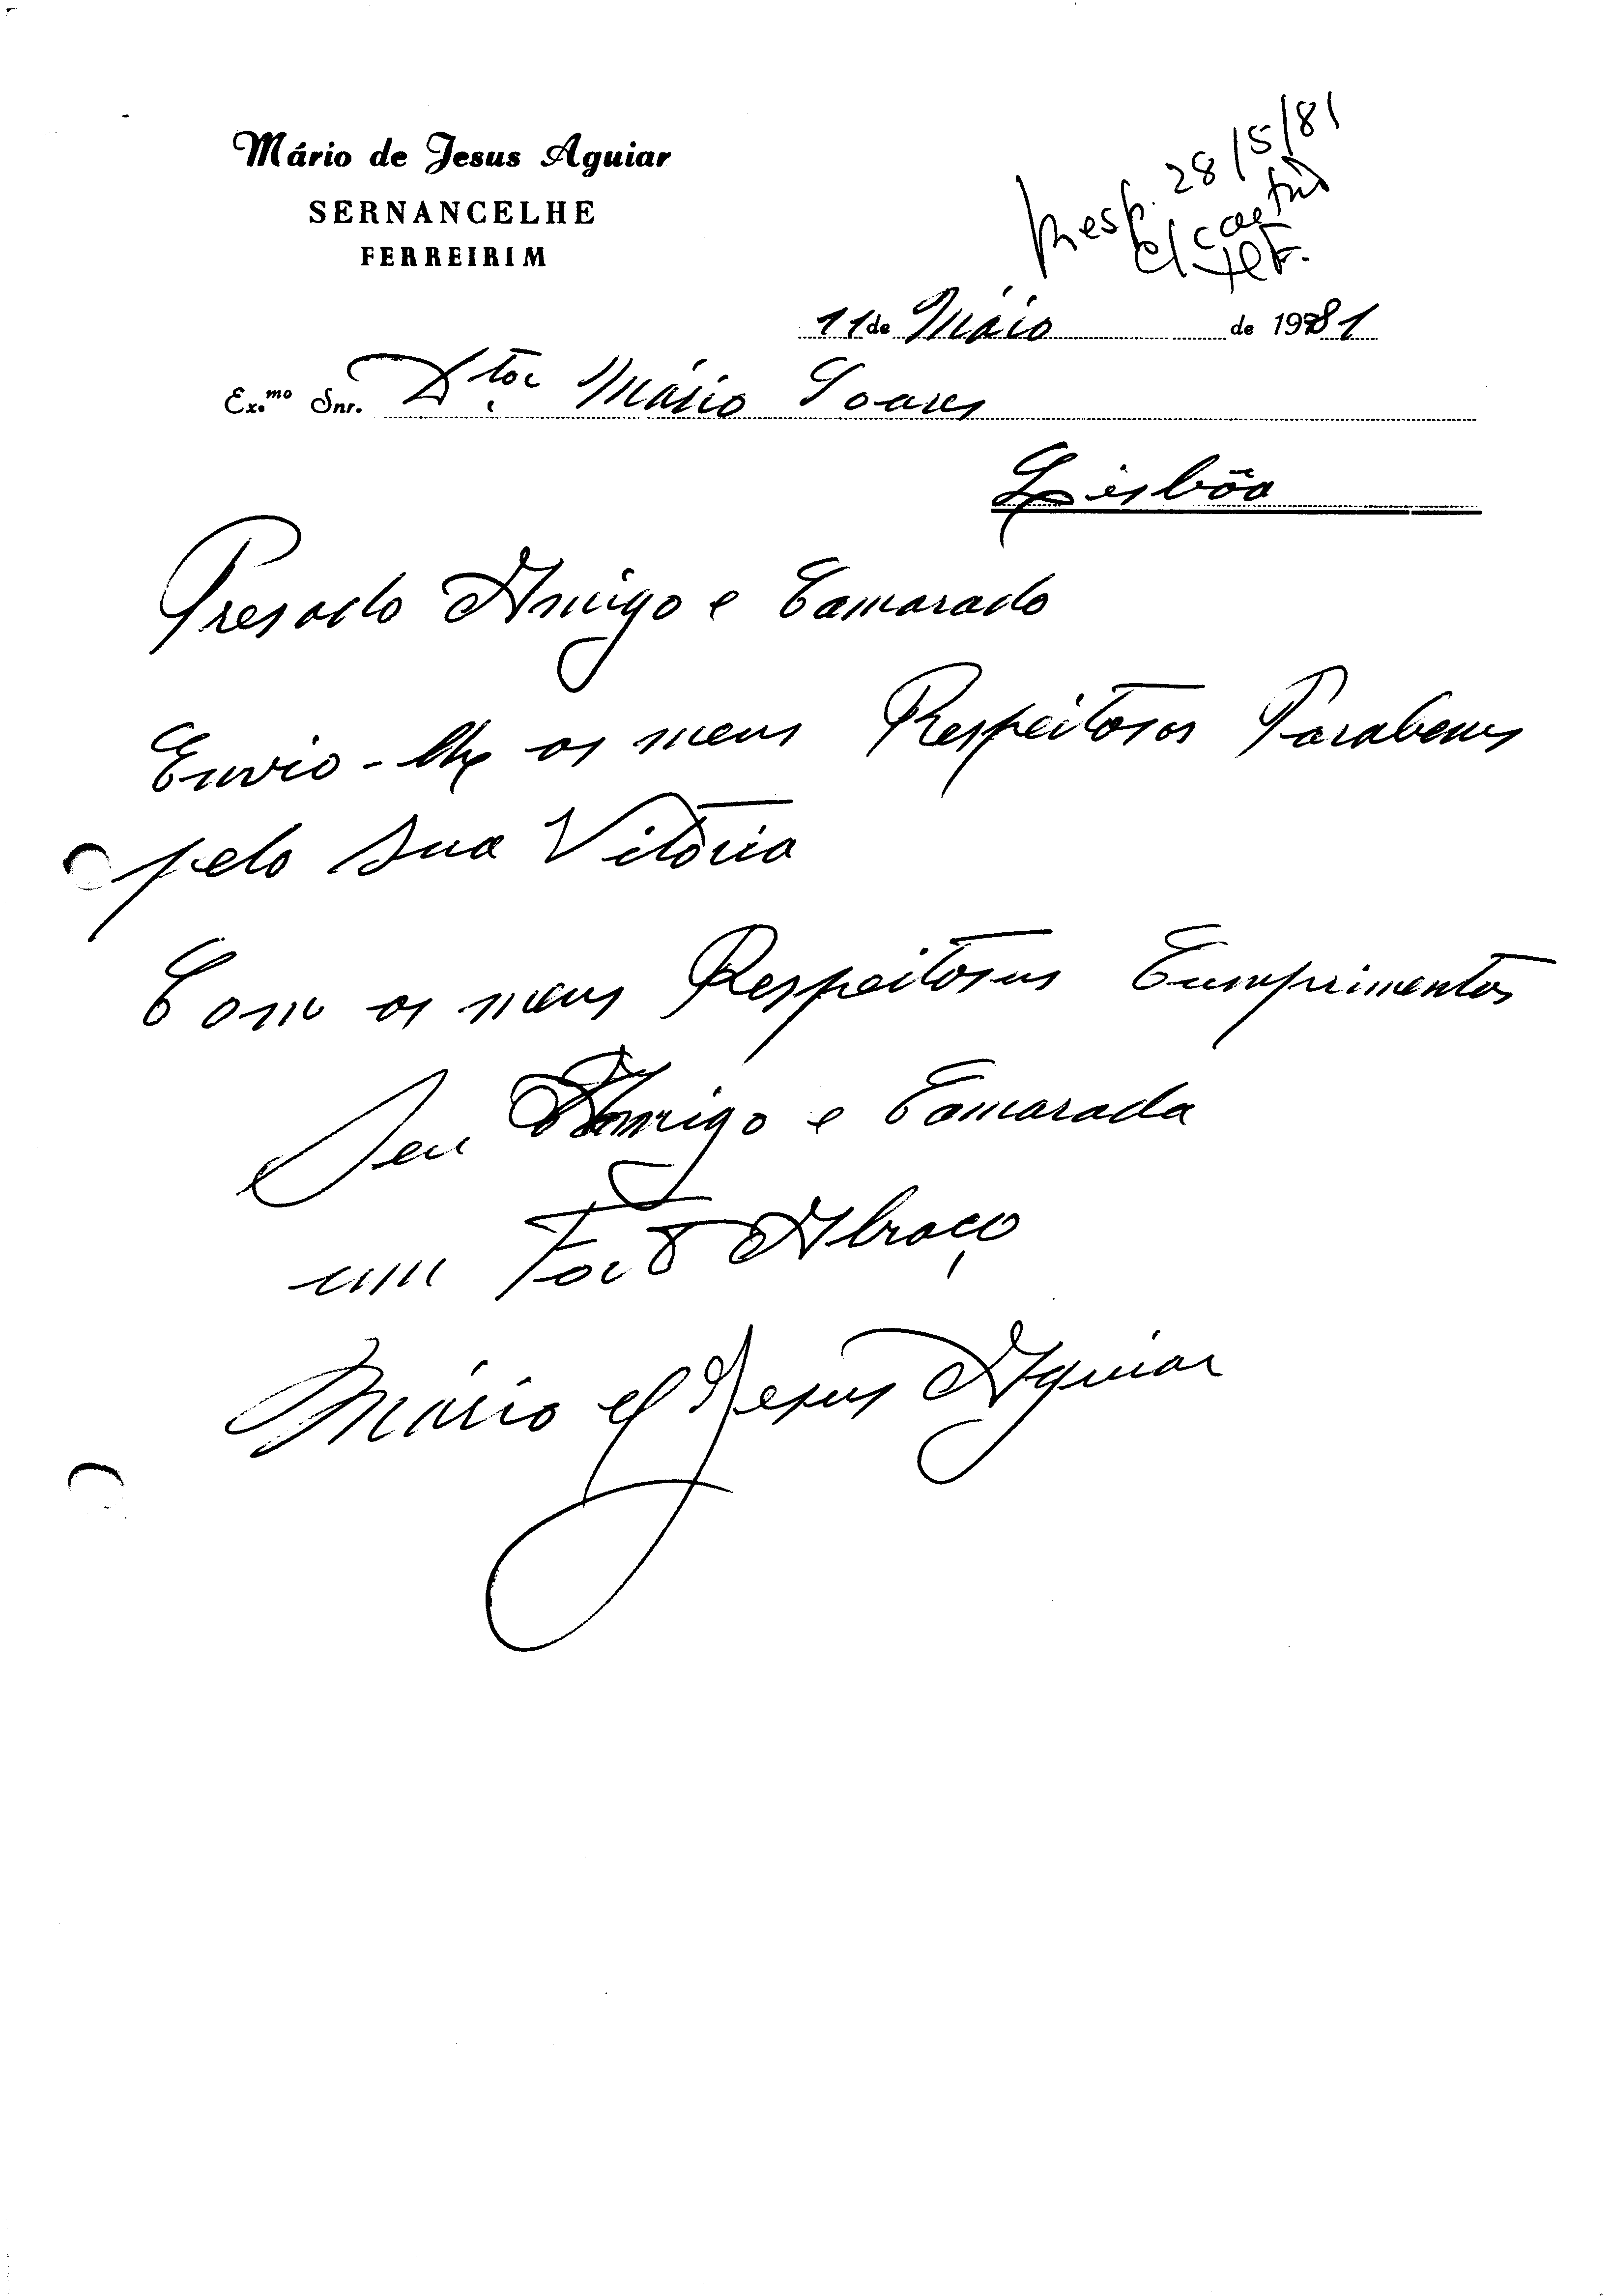 Mário de Jesus Aguiar
SERNANCELHE
FERREIRIM
Resp. 28/5/81
c/ cartão
11 de Máio de 1981
Ex.mo Snr. Dtor Mário Soares
Lisbôa
Presado Amigo e Camarada
Envio-lhe os meus Respeitosos Parabens
pela sua Vitória
Com os meus Respeitosos Cumprimentos
Seu Amigo e Camarada
um Forte Abraço
Mário de Jesus Aguiar